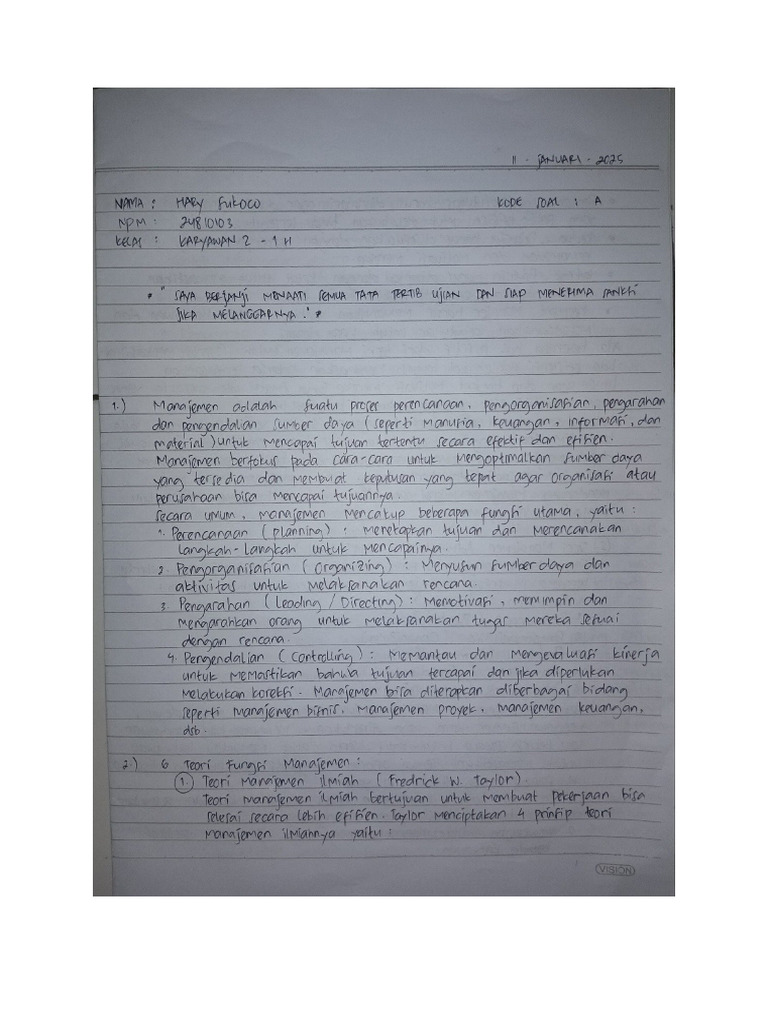 11 - JANUARI - 2025
NAMA : HARY SUKOCO KODE SOAL : A
NPM : 24810103
KELAS : KARYAWAN 2 - 1 H
* " SAYA BERJANJI MENAATI SEMUA TATA TERTIB UJIAN DAN SIAP MENERIMA SANKSI
JIKA MELANGGARNYA . " *
1.) Manajemen adalah suatu proses perencanaan, pengorganisasian, pengarahan
dan pengendalian sumber daya (seperti manusia, keuangan, informasi, dan
material) untuk mencapai tujuan tertentu secara efektif dan efisien.
Manajemen berfokus pada cara-cara untuk mengoptimalkan sumber daya
yang tersedia dan membuat keputusan yang tepat agar organisasi atau
perusahaan bisa mencapai tujuannya.
secara umum, manajemen mencakup beberapa fungsi utama, yaitu :
1. Perencanaan (planning) : menetapkan tujuan dan merencanakan
langkah-langkah untuk mencapainya.
2. Pengorganisasian (Organizing) : Menyusun sumber daya dan
aktivitas untuk melaksanakan rencana.
3. Pengarahan (Leading / Directing) : Memotivasi, memimpin dan
mengarahkan orang untuk melaksanakan tugas mereka sesuai
dengan rencana.
4. Pengendalian (Controlling) : Memantau dan mengevaluasi kinerja
untuk memastikan bahwa tujuan tercapai dan jika diperlukan
melakukan koreksi. Manajemen bisa diterapkan diberbagai bidang
seperti manajemen bisnis, manajemen proyek, manajemen keuangan,
dsb.
2.) 6 Teori Fungsi Manajemen :
1. Teori Manajemen ilmiah (Fredrick W. Taylor).
Teori manajemen ilmiah bertujuan untuk membuat pekerjaan bisa
selesai secara lebih efisien. Taylor menciptakan 4 prinsip teori
manajemen ilmiahnya yaitu :
VISION